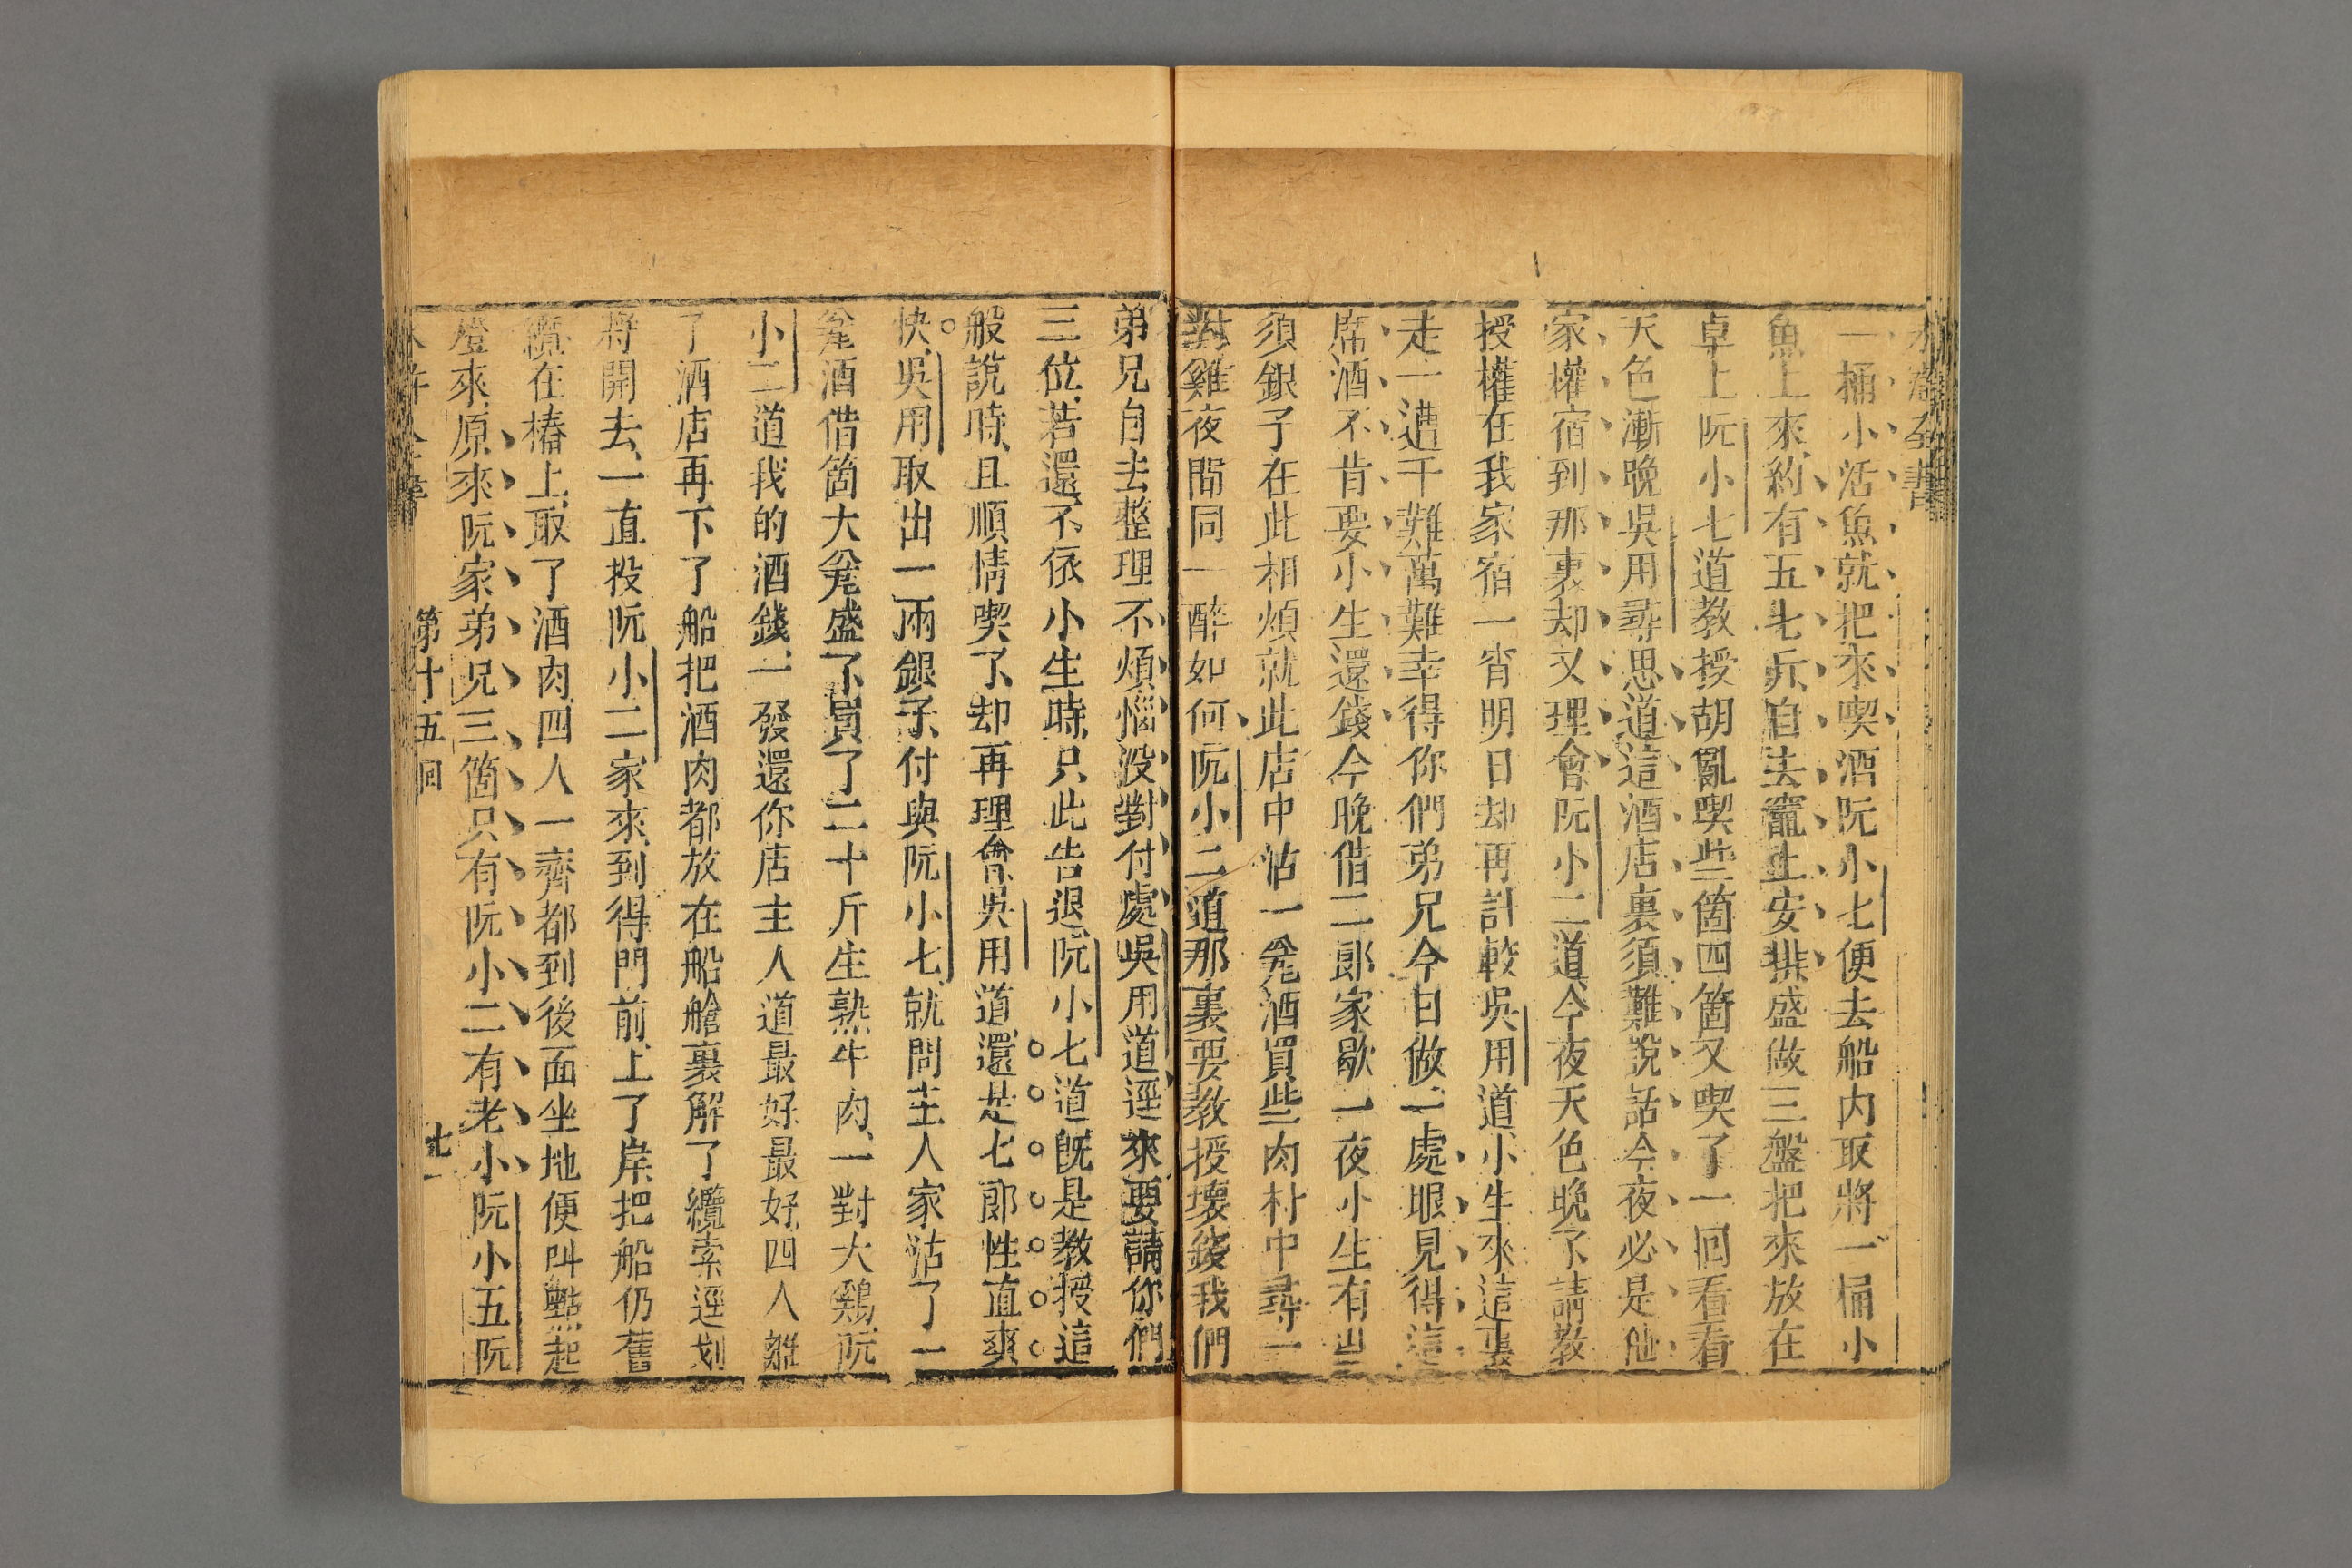 水滸全書
一桶小活魚就把來喫酒阮小七便去船内取將一桶小
魚上來約有五七斤自去竈上安排盛做三盤把來放在
卓上阮小七道教授胡亂喫些箇四箇又喫了一回看看
天色漸晚吳用尋思道這酒店裏須難說話今夜必是他
家權宿到那裏却又理會阮小二道今夜天色晚了請教
授權在我家宿一宵明日却再計較吳用道小生來這裏
走一遭千難萬難幸得你們弟兄今日做一處眼見得這
席酒不肯要小生還錢今晚借二郎家歇一夜小生有些
須銀子在此相煩就此店中沽一瓮酒買些肉村中尋一
對雞夜間同一醉如何阮小二道那裏要教授壞錢我們
弟兄自去整理不煩惱没對付處吳用道逕來要請你們
三位若還不依小生時只此告退阮小七道既是教授這
般說時且順情喫了却再理會吳用道還是七郎性直爽
快吳用取出一兩銀子付與阮小七就問主人家沽了一
瓮酒借箇大瓮盛了買了二十斤生熟牛肉一對大鷄阮
小二道我的酒錢一發還你店主人道最好最好四人離
了酒店再下了船把酒肉都放在船艙裏解了纜索逕划
將開去一直投阮小二家來到得門前上了岸把船仍舊
纜在樁上取了酒肉四人一齊都到後面坐地便叫點起
燈來原來阮家弟兄三箇只有阮小二有老小阮小五阮
水滸全書
第十五回
七